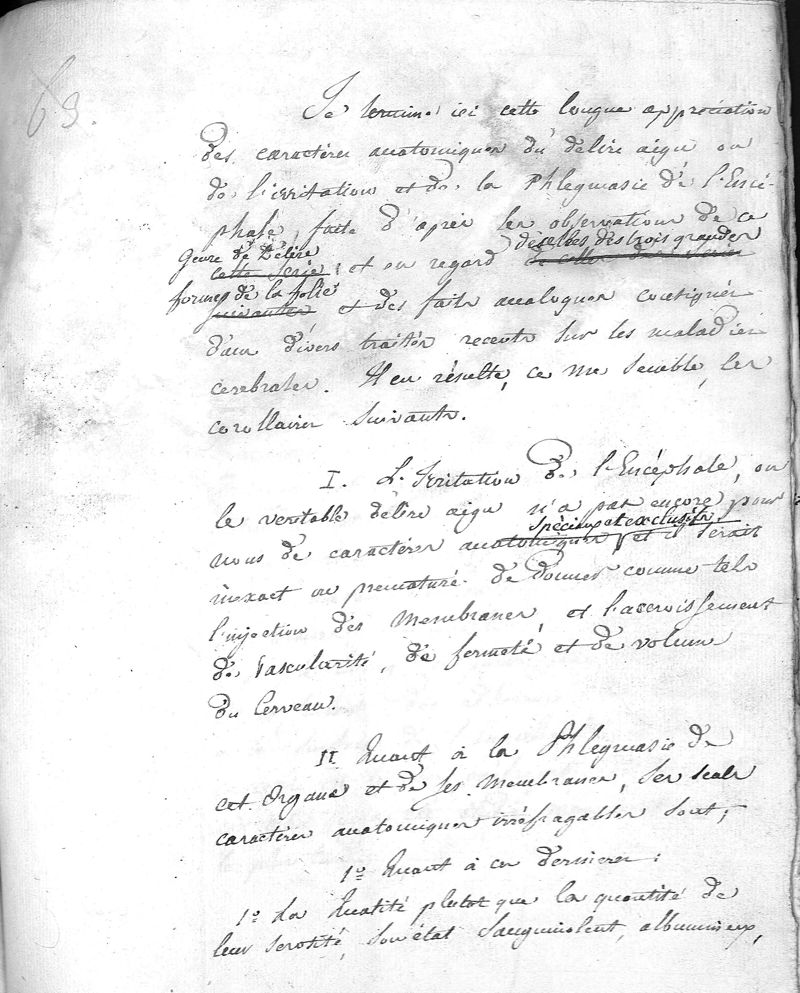 63.
Je termine ici cette longue appréciation
des caractères anatomiques du délire aigu ou
de l'irritation et de la Phlegmasie de l'Encé-
phale, faite d'après les observations de ce
Genre de Délire
cette Serie, et en regard de celles des trois grandes
de celles des Séries
formes de la folie
suivantes et des faits analogues consignés
dans divers traités recents sur les maladies
cerebrales. Il en résulte, ce me semble, les
corollaires suivants.
I. L'Irritation de l'Encéphale, ou
le veritable délire aigu n'a pas encore pour
nous de caractères anatomiques spéciaux et exclusifs, et il serait
inexact ou prematuré de donner comme tels
l'injection des Membranes, et l'accroissement
de Vascularité, de fermeté et de volume
du Cerveau.
II. Quant à la Phlegmasie de
cet Organe et de ses Membranes, ses seuls
caractères anatomiques irréfragables sont;
1º Quant à ces dernieres:
1º La Qualité plutot que la quantité de
leur serosité, son état Sanguinolent, albumineux,